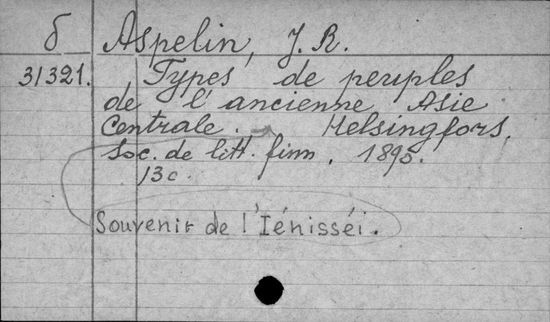 б Aspelin, J. R.
31321. Types de peuples
de l'ancienne Asie
Centrale. Helsingfors,
Soc. de litt. finn. 1890.
13 c.
Souvenir de l'Iénisséi.